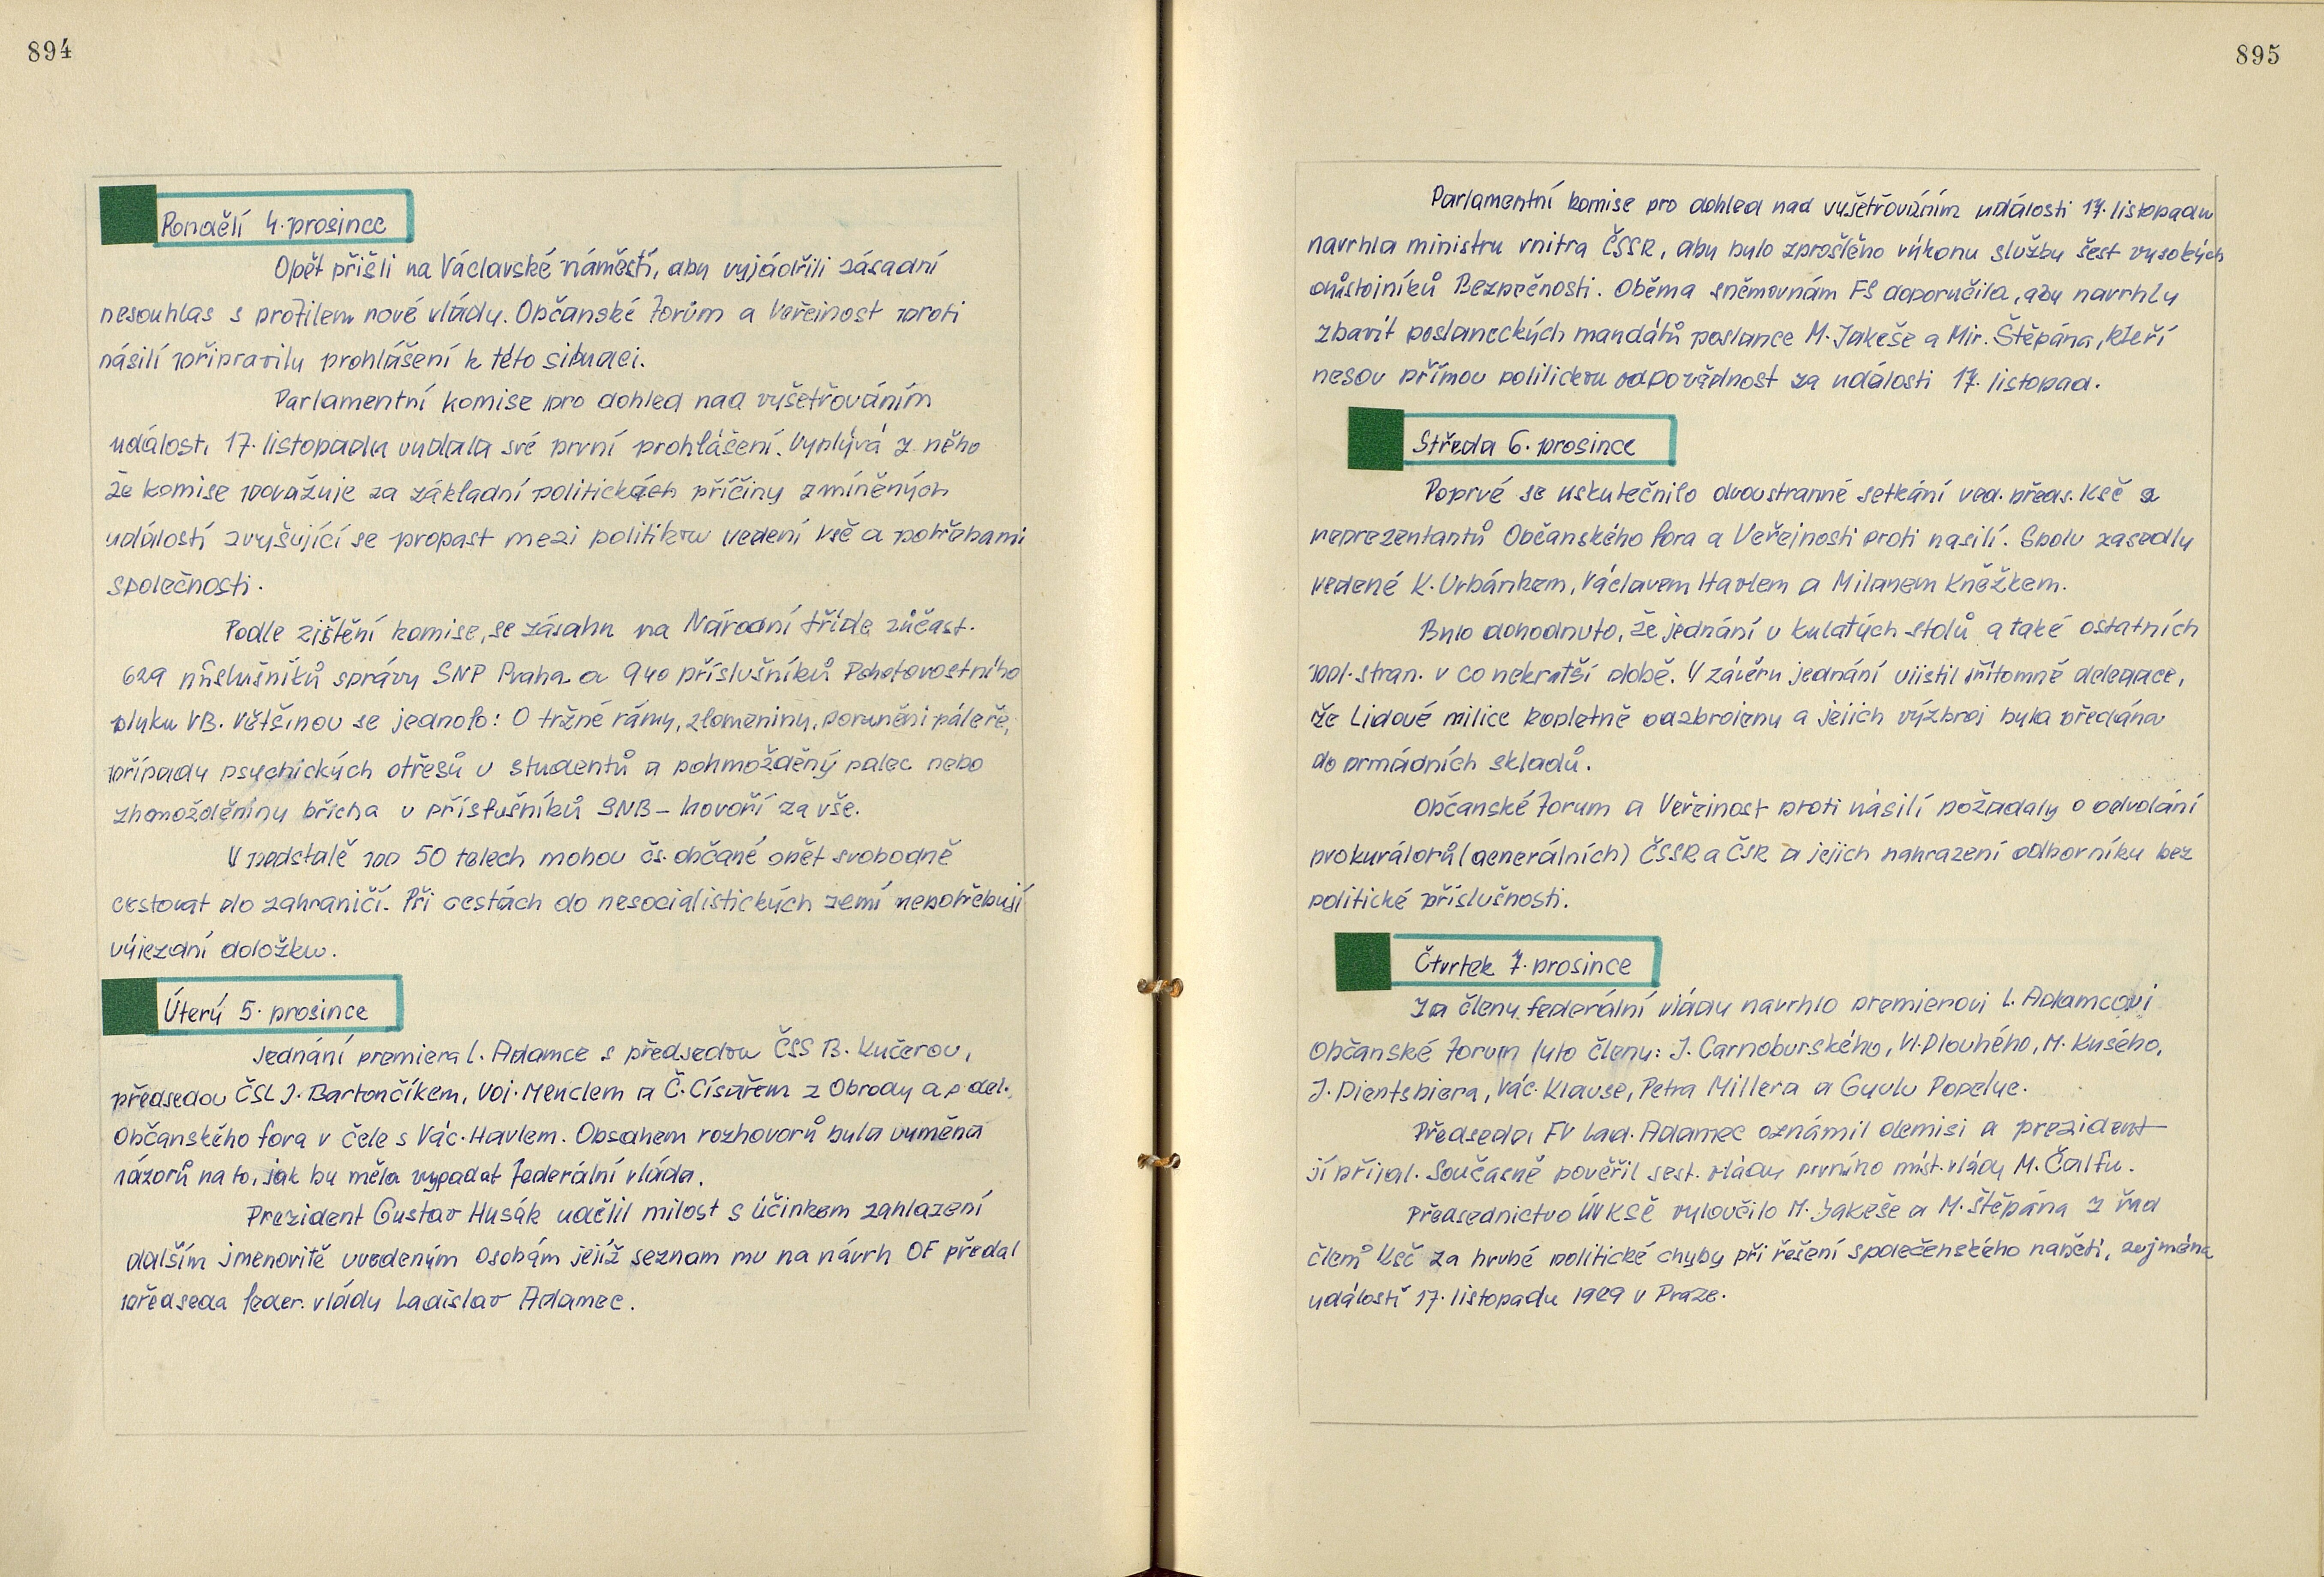 894
Pondělí 4. prosince
Opět přišli na Václavské náměstí, aby vyjádřili zásadní
nesouhlas s profilem nové vlády. Občanské Forům a Veřejnost proti
násilí připravily prohlášení k této situaci.
Parlamentní komise pro dohled nad vyšetřováním
událostí 17. listopadu vydala své první prohlášení. Vyplývá z něho
že komise považuje za základní politických příčiny zmíněných
událostí zvyšující se propast mezi politikou vedení KSČ a potřebami
společnosti.
Podle zjištění komise, se zásahu na Národní třídě zúčast.
629 příslušníků správy SNP Praha a 940 příslušníků Pohotovostního
pluku VB. Většinou se jednalo: O tržné rámy, zlomeniny, poranění páteře,
případy psychických otřesů u studentů a pohmožděný palec nebo
zhmožděniny břicha u příslušníků SNB - hovoří za vše.
V podstatě po 50 letech mohou čs. občané opět svobodně
cestovat do zahraničí. Při cestách do nesocialistických zemí nepotřebují
výjezdní doložku.
Úterý 5. prosince
Jednání premiera L. Adamce s předsedou ČSS B. Kučerou,
předsedou ČSL J. Bartončíkem, Voj. Menclem a Č. Císařem z Obrody a p. del.
Občanského fora v čele s Vác. Havlem. Obsahem rozhovorů byla výměna
názorů na to, jak by měla vypadat Federální vláda.
Prezident Gustav Husák udělil milost s účinkem zahlazení
dalším jmenovitě uvedeným osobám jejíž seznam mu na návrh OF předal
předseda feder. vlády Ladislav Adamec.
895
Parlamentní komise pro dohled nad vyšetřováním událostí 17. listopadu
navrhla ministru vnitra ČSSR, aby bylo zproštěno výkonu služby šest vysokých
důstojníků Bezpečnosti. Oběma sněmovnám FS doporučila, aby navrhly
zbavit poslaneckých mandátů poslance M. Jakeše a Mir. Štěpána, kteří
nesou přímou politickou odpovědnost za události 17. listopad.
Středa 6. prosince
Poprvé se uskutečnilo dvoustranné setkání ved. předs. KSČ a
reprezentantů Občanského fora a Veřejnosti proti nasilí. Spolu zasedly
vedené K. Urbánkem, Václavem Havlem a Milanem Kněžkem.
Bylo dohodnuto, že jednání u kulatých stolů a také ostatních
pol. stran. v co nekratší době. V závěru jednání ujistil přítomné delegace,
že Lidové milice kopletně odzbrojeny a jejich výzbroj byla předána
do armádních skladů.
Občanské Forum a Veřejnost proti násilí požádaly o odvolání
prokurátorů (generálních) ČSSR a ČSR a jejich nahrazení odborníky bez
politické příslušnosti.
Čtvrtek 7. prosince
Za členy federální vlády navrhlo premierovi L. Adamcovi
Občanské Forum tyto členy: J. Carnoburského, Vl. Dlouhého, M. Kusého,
J. Dientsbiera, Vác. Klause, Petra Millera a Gyulu Popelye.
Předseda FV Lad. Adamec oznámil demisi a prezident
jí přijal. Současně pověřil sest. vlády prvního míst. vlády M. Čalfu.
Předsednictvo ÚV KSČ vyloučilo M. Jakeše a M. Štěpána z řad
členů KSČ za hrubé politické chyby při řešení společenského napětí, zejména
událostí 17. listopadu 1989 v Praze.